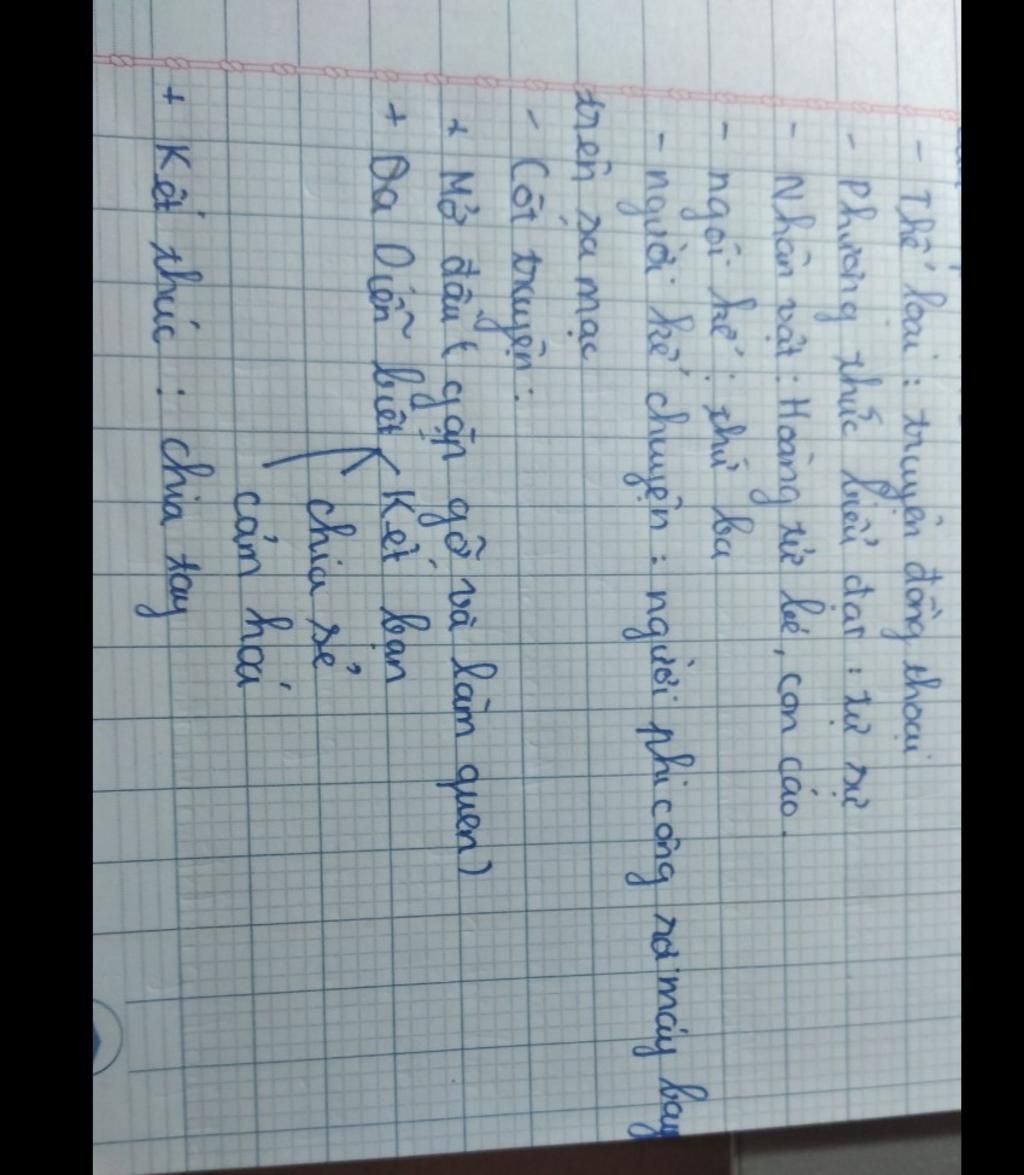 - Thể loại : truyện đồng thoại
- Phương thức biểu đạt : tự sự
- Nhân vật : Hoàng tử bé, con cáo.
- ngôi kể : thứ ba
- người kể chuyện : người phi công rơi máy bay
trên sa mạc
- Cốt truyện :
+ Mở đầu ( gặp gỡ và làm quen)
+ Da Diễn biết Kết bạn
chia sẻ
cảm hoá
+ Kết thúc : chia tay